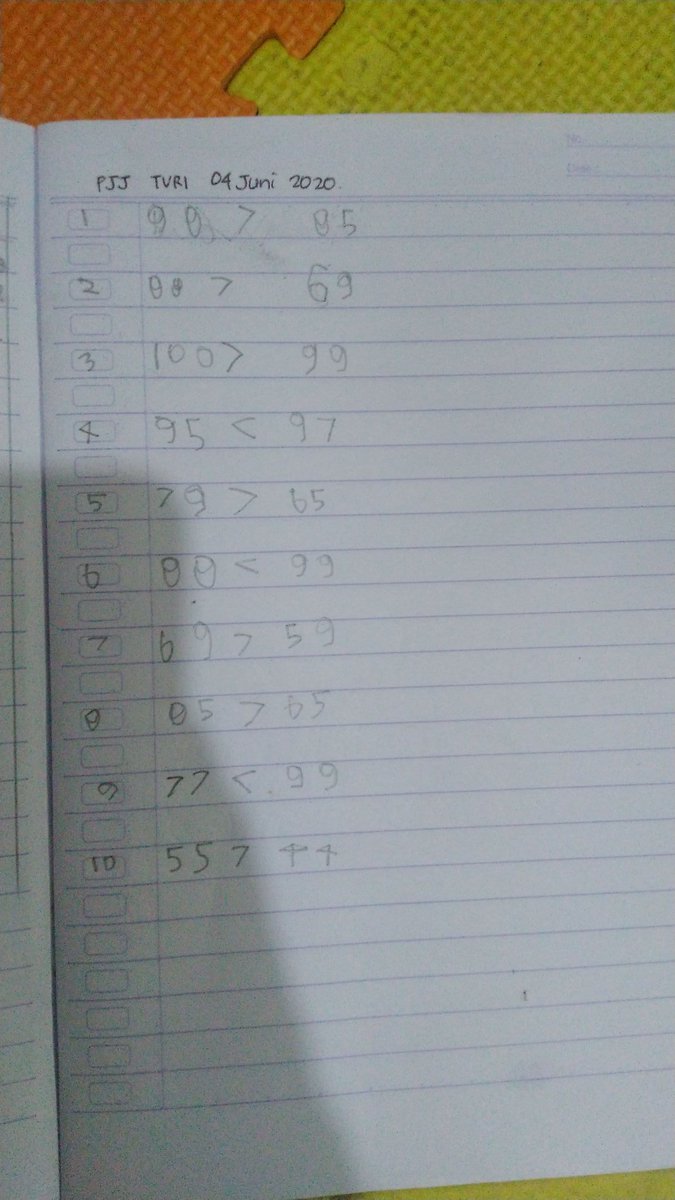 No.
Date
PJJ TVRI 04 Juni 2020.
1 98 > 85
2 88 > 69
3 100 > 99
4 95 < 97
5 79 > 65
6 88 < 99
7 69 > 59
8 85 > 65
9 77 < 99
10 55 > 44